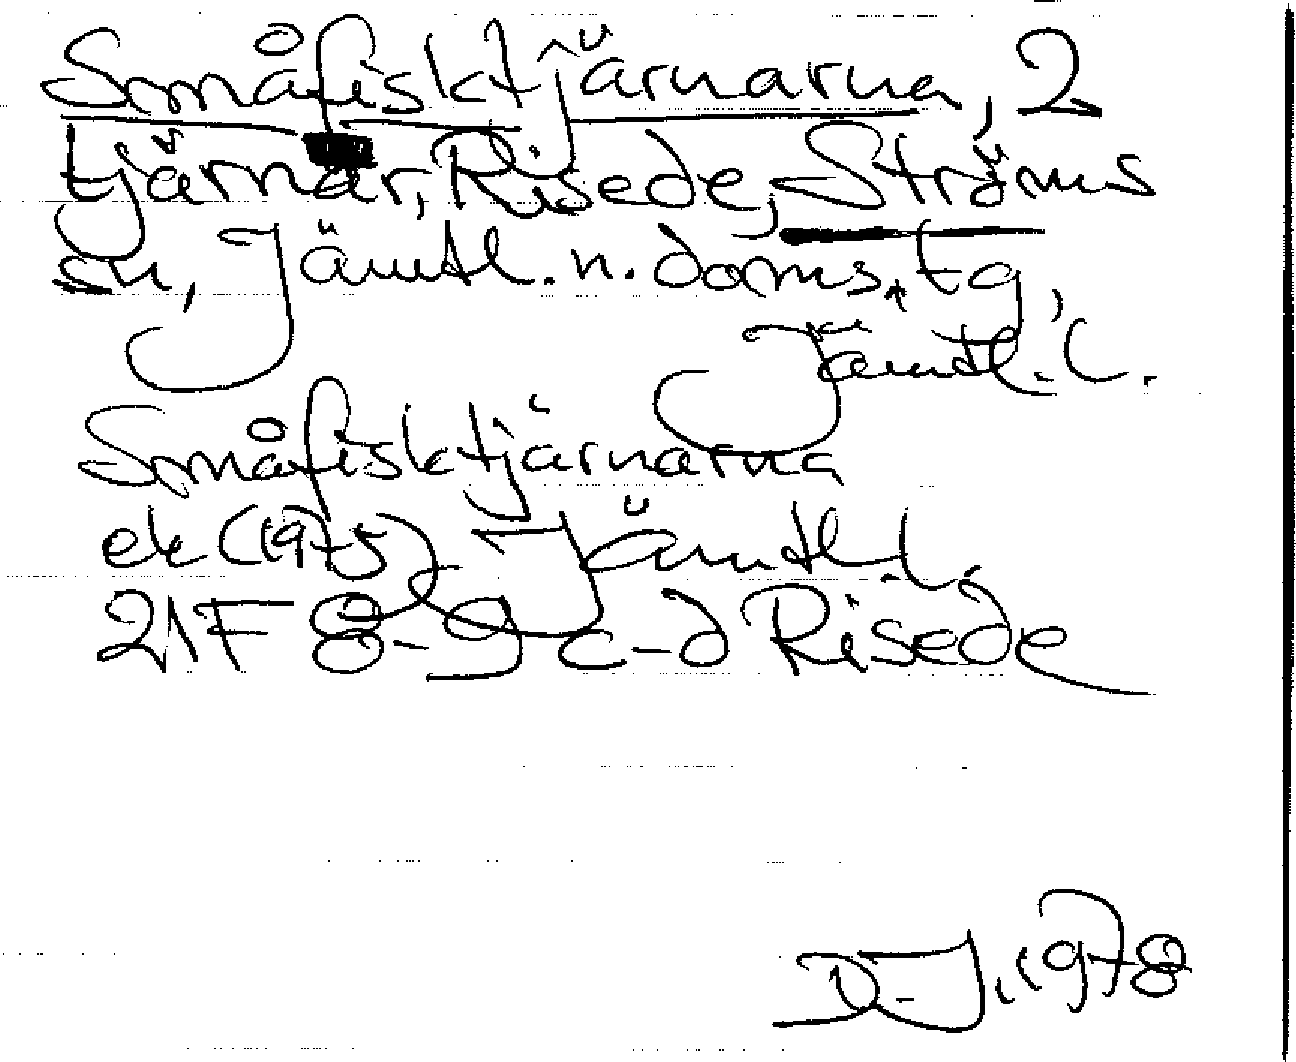 Småfisktjärnarna, 2
tjärnar, Risede, Ströms
sn, Jämtl. n. doms. tg,
Jämtl. l.
Småfisktjärnarna
ek (1975) Jämtl. l.
21F 8-9 c-d Risede
D-J. 1978